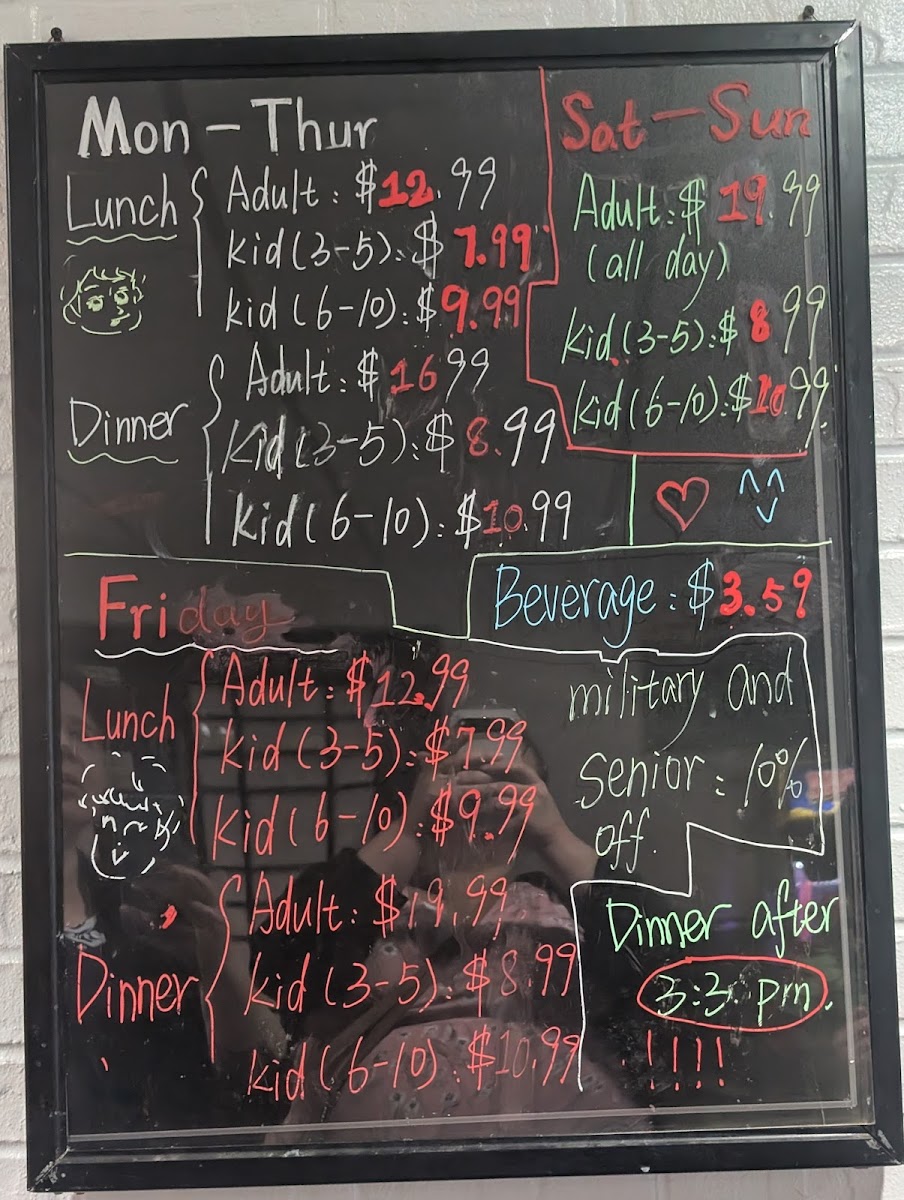 Mon - Thur
Lunch
Adult: $12.99
kid (3-5): $7.99
kid (6-10): $9.99
Dinner
Adult: $16.99
kid (3-5): $8.99
kid (6-10): $10.99
Sat - Sun
Adult: $19.99
(all day)
kid (3-5): $8.99
kid (6-10): $10.99
Beverage: $3.59
Friday
Lunch
Adult: $12.99
kid (3-5): $7.99
kid (6-10): $9.99
Dinner
Adult: $19.99
kid (3-5): $8.99
kid (6-10): $10.99
military and
Senior: 10%
off
Dinner after
3:3 pm.
!!!!